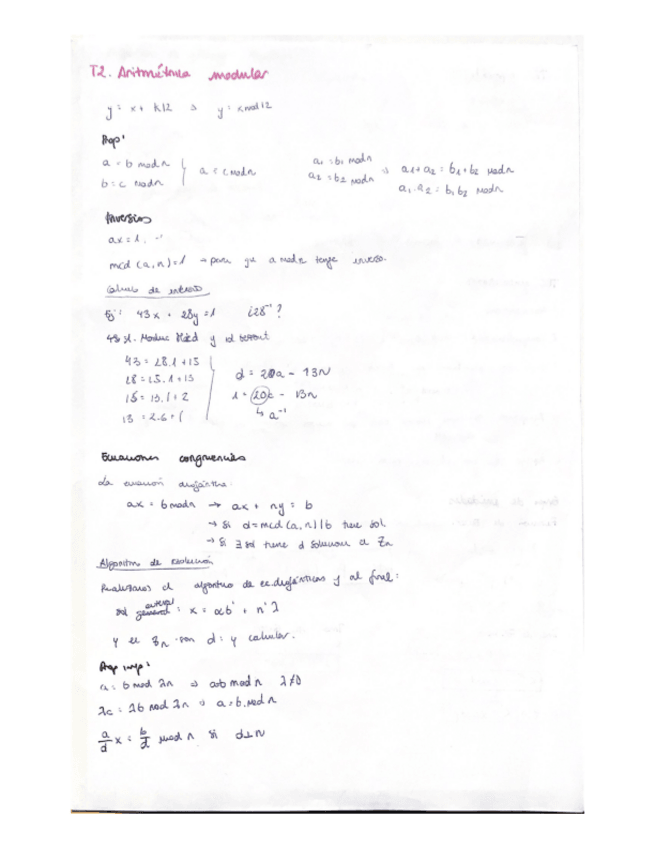 T2. Aritmética modular
y = x + k12 → y = x mod 12
Prop:
a = b mod n
b = c mod n
a = c mod n
a1 = b1 mod n
a2 = b2 mod n
→ a1 + a2 = b1 + b2 mod n
a1 · a2 = b1 b2 mod n
Inversos
ax = 1
mcd (a, n) = 1 → para que a mod n tenga inverso.
Calculo de inverso
43x + 28y = 1 ¿28⁻¹?
43 = 28.1 + 15
28 = 15.1 + 13
15 = 13.1 + 2
13 = 2.6 + 1
d = 20a - 13N
1 = 20a - 13n
↳ a⁻¹
Ecuaciones congruencias
La ecuación diofántica:
ax = b mod n → ax + ny = b
→ si d = mcd (a, n) | b tiene sol.
→ si ∃ sol tiene d soluciones en Zn
Algoritmo de resolución
Realizamos el algoritmo de ec. diofánticas y al final:
sol general : x = αb' + n'λ
y en Zn son d : y calcular.
Prop imp:
a = b mod λn → a=b mod n λ≠0
λa = λb mod λn → a = b mod n
a/d x = b/d mod n si d⊥N